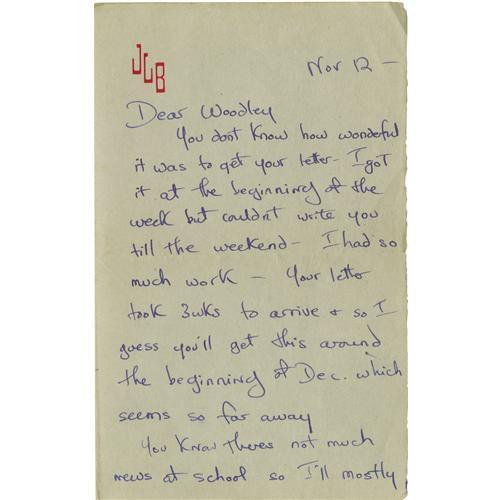 JLB
Nov 12 —
Dear Woodley
You dont know how wonderful
it was to get your letter - I got
it at the beginning of the
week but couldn't write you
till the weekend - I had so
much work - Your letter
took 3wks to arrive & so I
guess you'll get this around
the beginning of Dec. which
seems so far away
You Know theres not much
news at school so I'll mostly